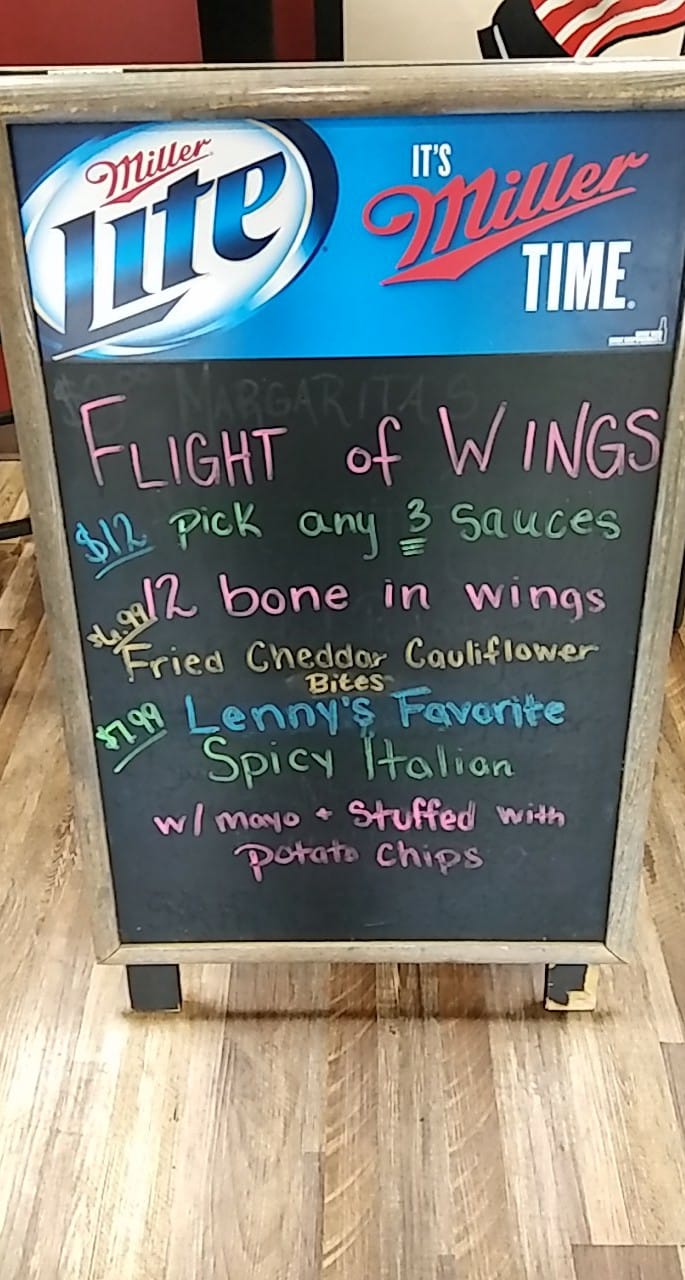 Miller
Lite
IT'S
Miller
TIME.
MARGARITAS
FLIGHT of WINGS
$12 Pick any 3 Sauces
12 bone in wings
Fried Cheddar Cauliflower
Bites
$7.99 Lenny's Favorite
Spicy Italian
w/ mayo + Stuffed with
potato chips